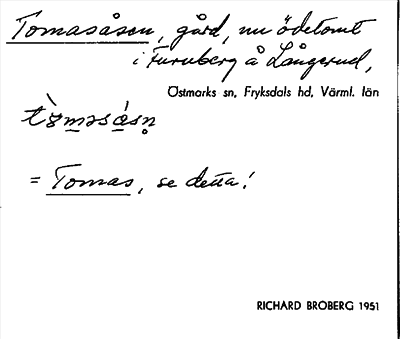 Tomasåsen, gård, nu ödetomt
i Furuberg å Långerud,
Östmarks sn, Fryksdals hd, Värml. län
= Tomas, se detta!
RICHARD BROBERG 1951